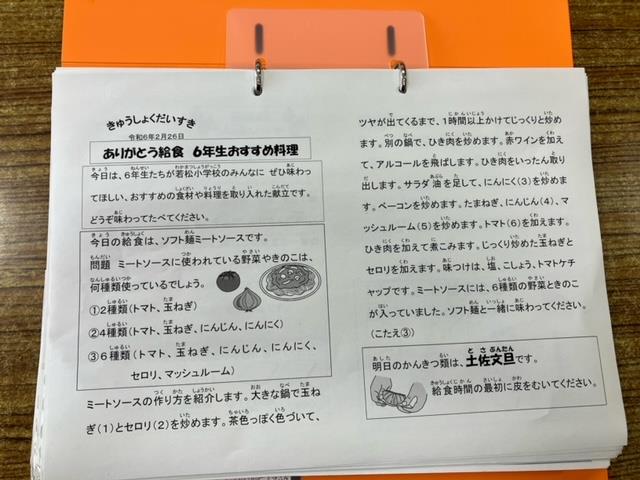 きゅうしょくだいすき
令和6年2月26日
ありがとう給食 6年生おすすめ料理
今日は、6年生たちが若松小学校のみんなに ぜひ味わっ
てほしい、おすすめの食材や料理を取り入れた献立です。
どうぞ味わってたべてください。
今日の給食は、ソフト麺ミートソースです。
問題 ミートソースに使われている野菜やきのこは、
何種類使っているでしょう。
①2種類(トマト、玉ねぎ)
②4種類(トマト、玉ねぎ、にんじん、にんにく)
③6種類(トマト、玉ねぎ、にんじん、にんにく、
セロリ、マッシュルーム)
ミートソースの作り方を紹介します。大きな鍋で玉ね
ぎ(1)とセロリ(2)を炒めます。茶色っぽく色づいて、
ツヤが出てくるまで、1時間以上かけてじっくりと炒め
ます。別の鍋で、ひき肉を炒めます。赤ワインを加え
て、アルコールを飛ばします。ひき肉をいったん取り
出します。サラダ油を足して、にんにく(3)を炒めま
す。ベーコンを炒めます。たまねぎ、にんじん(4)、マ
ッシュルーム(5)を炒めます。トマト(6)を加えます。
ひき肉を加えて煮こみます。じっくり炒めた玉ねぎと
セロリを加えます。味つけは、塩、こしょう、トマトケチ
ャップです。ミートソースには、6種類の野菜ときのこ
が入っていました。ソフト麺と一緒に味わってください。
(こたえ③)
明日のかんきつ類は、土佐文旦です。
給食時間の最初に皮をむいてください。